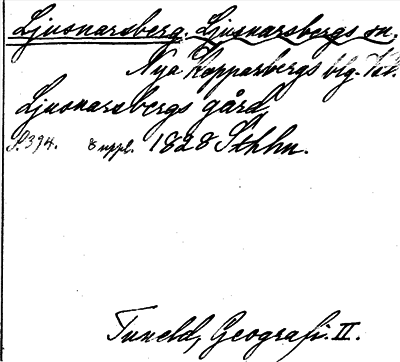 Ljusnarsberg. Ljusnarsbergs sn.
Nya Kopparbergs blg.
Ljusnarsbergs gård,
S. 394. 8 uppl. 1828 Sthlm.
Tuneld, Geografi. II.